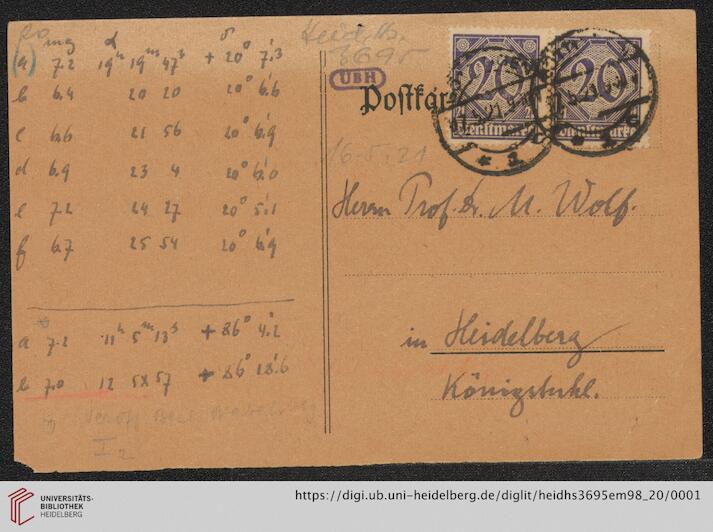 mg α δ
a) 7.2 19h 19m 47s + 20° 7.'3
b 6.4 20 20 20° 6.'6
c 6.6 21 56 20° 6.'9
d 6.9 23 4 20° 6.'0
e 7.2 24 27 20° 5.'1
f 6.7 25 54 20° 6.'9
a 7.2 11h 5m 13s + 86° 4.'2
b 7.0 12 58 57 + 86° 18.'6
I 2
Heid. Hs.
3695
UBH
Postkar
20 20
Dienstmarke
16.5.21
Herrn Prof. Dr. M. Wolf.
in Heidelberg
Königstuhl.
UNIVERSITÄTS-
BIBLIOTHEK
HEIDELBERG
https://digi.ub.uni-heidelberg.de/diglit/heidhs3695em98_20/0001